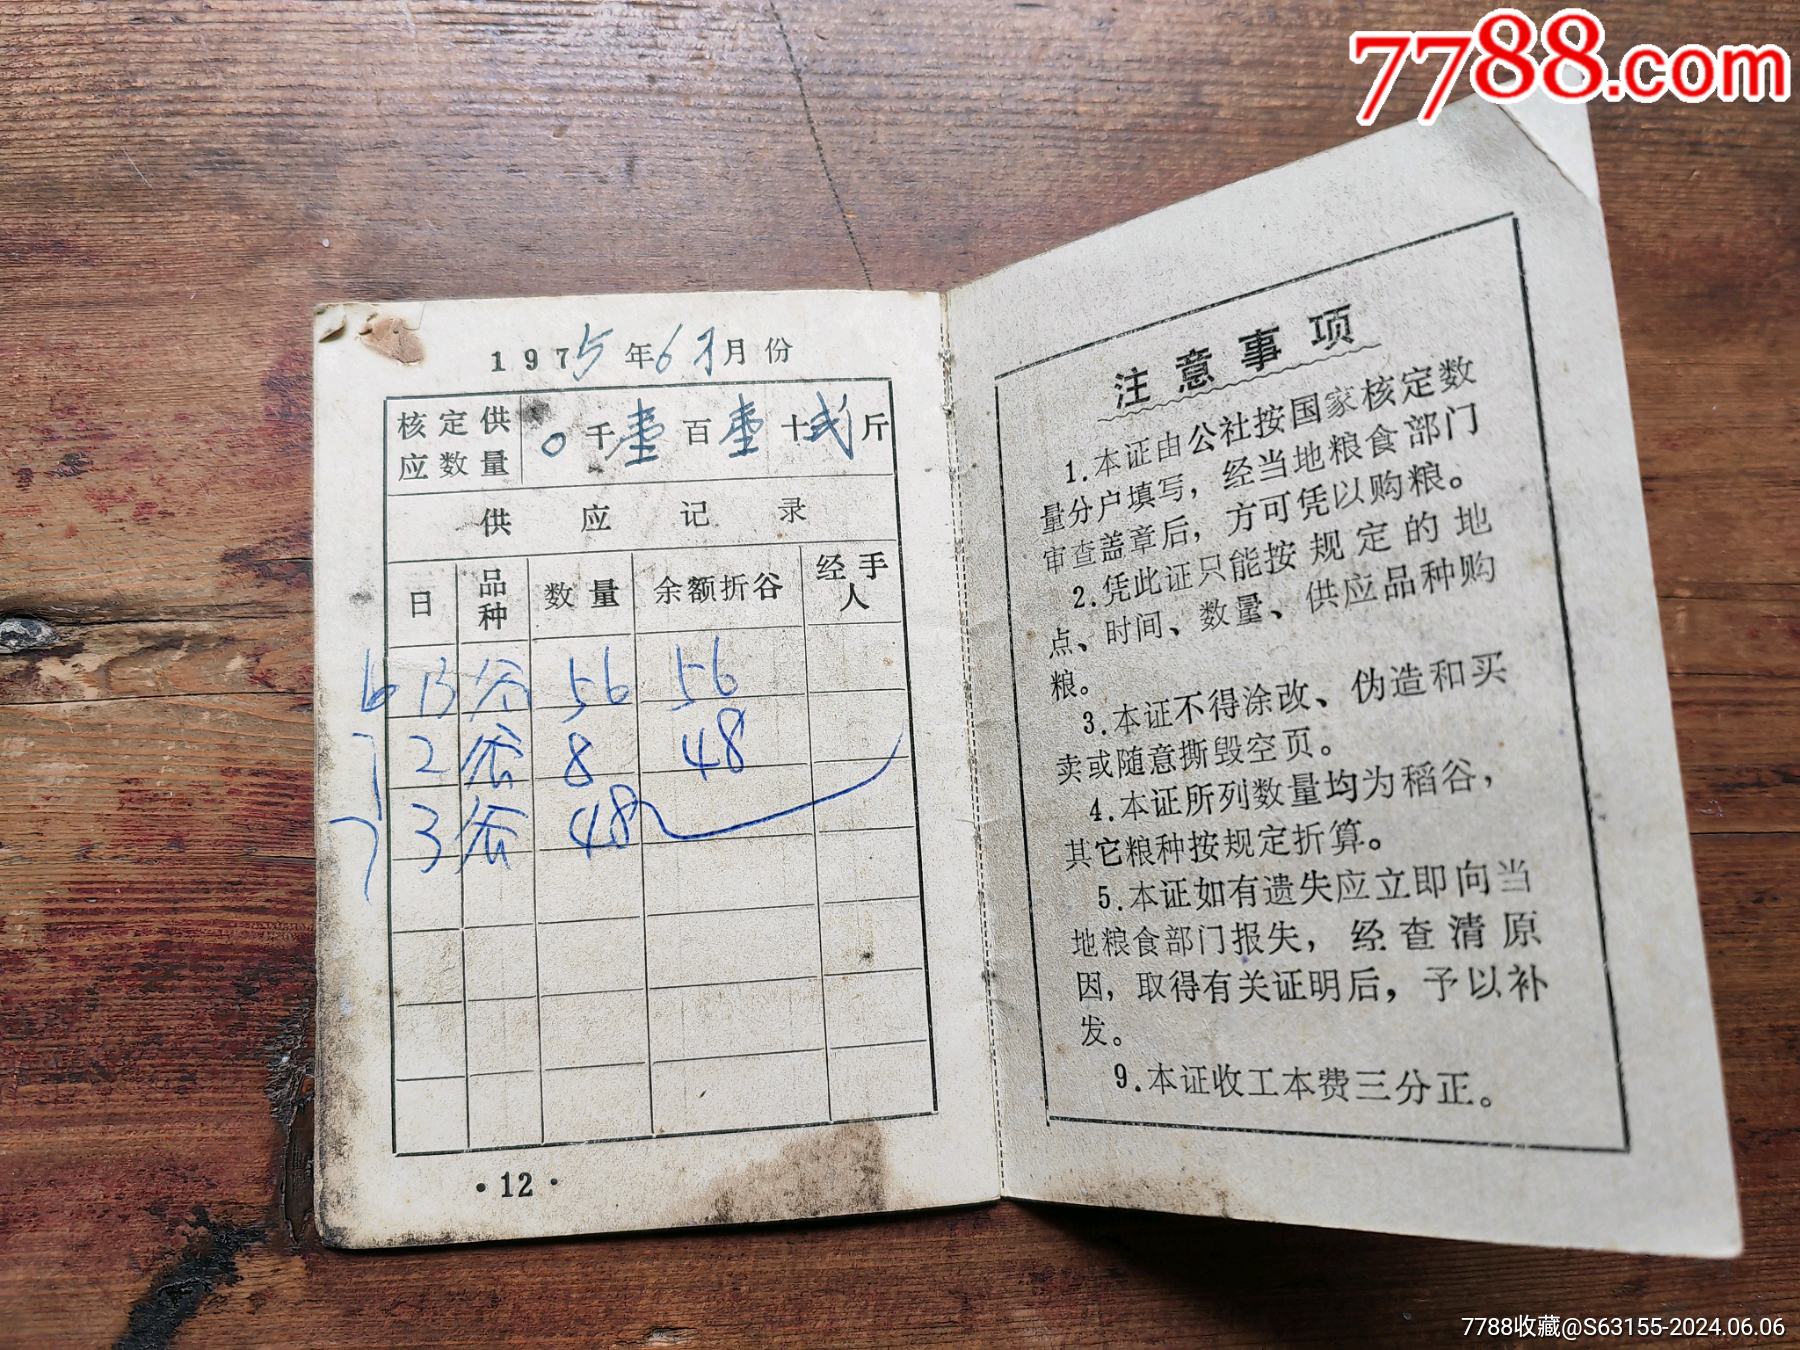 7788.com
1975年6月月份
核定供应数量 0千壹百壹十贰斤
供应记录
日 品种 数量 余额折谷 经手人
6 13 谷 56 56
7 2 谷 8 48
7 3 谷 48
·12·
注意事项
1.本证由公社按国家核定数
量分户填写，经当地粮食部门
审查盖章后，方可凭以购粮。
2.凭此证只能按规定的地
点、时间、数量、供应品种购
粮。
3.本证不得涂改、伪造和买
卖或随意撕毁空页。
4.本证所列数量均为稻谷，
其它粮种按规定折算。
5.本证如有遗失应立即向当
地粮食部门报失，经查清原
因，取得有关证明后，予以补
发。
9.本证收工本费三分正。
7788收藏@S63155-2024.06.06